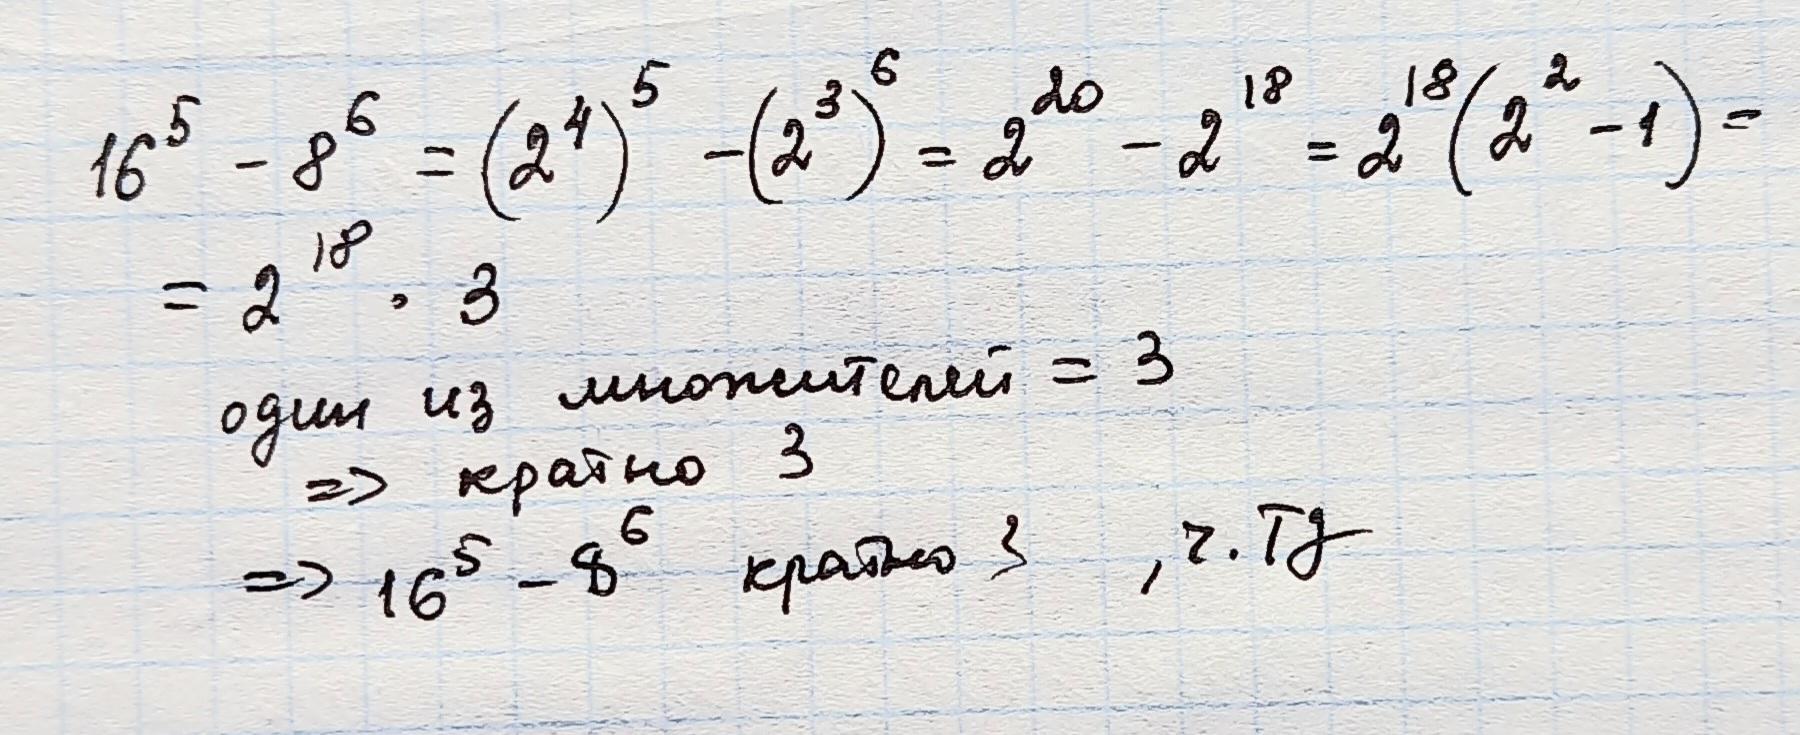 16⁵ - 8⁶ = (2⁴)⁵ - (2³)⁶ = 2²⁰ - 2¹⁸ = 2¹⁸(2² - 1) =
= 2¹⁸ · 3
один из множителей = 3
=> кратно 3
=> 16⁵ - 8⁶ кратно 3 , ч. тд